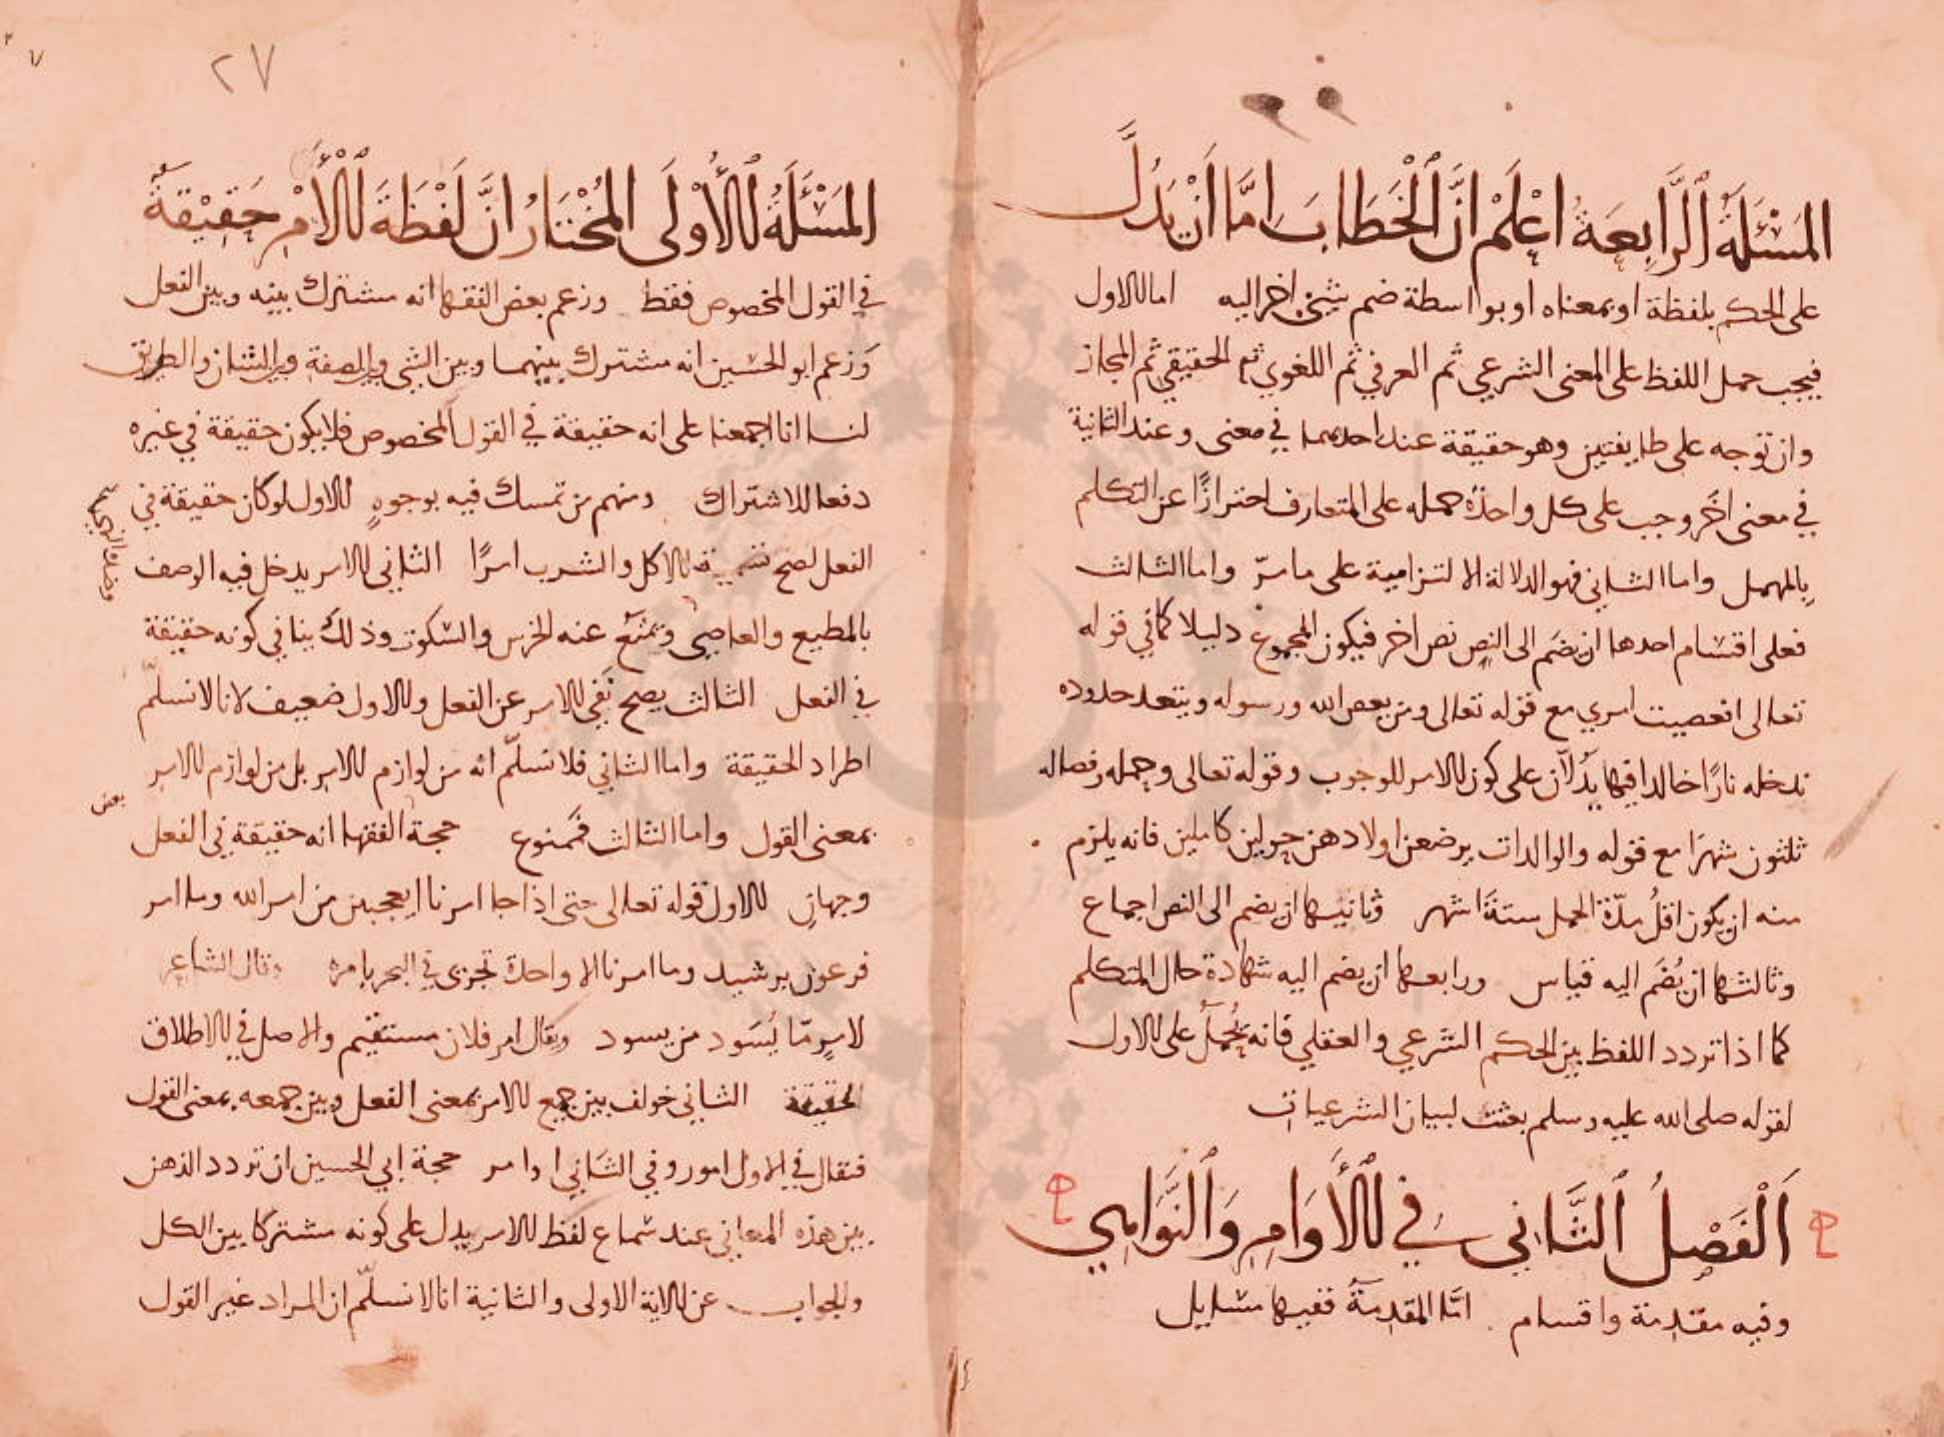 المَسْئَلَةُ الرَّابِعَةُ اعْلَمْ انَّ الْخَطَابَ امَّا اَنْ يَدُلَّ
على الحكم بلفظة او بمعناه او بواسطة ضم شيئ اخر اليه اما الاول
فيجب حمل اللفظ على المعنى الشرعي ثم العرفي ثم اللغوي ثم الحقيقي ثم المجاز
وان توجه على طايفتين وهو حقيقة عند احديهما في معنى وعند الثانية
في معنى اخر وجب على كل واحدة حمله على المتعارف احترازًا عن التكلم
بالمهمل واما الثاني فهو الدلالة الالتزامية على ما مرّ واما الثالث
فعلى اقسام احدها ان يضم الى النص نص اخر فيكون المجموع دليلا كما في قوله
تعالى افعصيت امري مع قوله تعالى ومن يعص الله ورسوله ويتعد حدوده
ندخله نارًا خالدا فيها يدُلاّن على كون الامر للوجوب وقوله تعالى وحمله وفصاله
ثلثون شهرًا مع قوله والوالدات يرضعن اولادهن حولين كاملين فانه يلزم
منه ان يكون اقلُ مدّة الحمل ستة اشهر وثانيها ان يضم الى النص اجماع
وثالثها ان يُضَم اليه قياس ورابعها ان يضم اليه شهادة حال المتكلم
كما اذا تردد اللفظ بين الحكم الشرعي والعقلي فانه يُحملُ على الاول
لقوله صلى الله عليه وسلم بعثت لبيان الشرعيات
اَلْفَصْلُ الثَّانِي في الْأَوَامِرِ وَالنَّوَاهِي
وفيه مقدمة واقسام امّا المقدمةُ ففيها مسايل
٢٧
المَسْئَلَةُ الْأُوْلَى المُخْتَارُ انَّ لَفْظَةَ الْأَمْرِ حَقِيْقَةٌ
في القول المخصوص فقط وزعم بعض الفقها انه مشترك بينه وبين الفعل
وَزعم ابو الحسين انه مشترك بينهما وبين الشي وبين الصفة وبين الشان والطريق
لنا انا اجمعنا على انه حقيقة في القول المخصوص فلا يكون حقيقة في غيره
دفعا للاشتراك ومنهم من تمسك فيه بوجوهٍ الاول لو كان حقيقة في
الفعل لصح تسمية الاكل والشرب امرًا الثاني الامر يدخل فيه الوصف
بالمطيع والعاصي ويمنع عنه الخرس والسكوت وذلك ينافي كونه حقيقة
في الفعل الثالث يصح نفي الامر عن الفعل والاول ضعيف لانا لا نسلّم
اطراد الحقيقة واما الثاني فلا نسلّم انه من لوازم الامر بل من لوازم الامر
بعض
بمعنى القول واما الثالث فممنوع حجة الفقها انه حقيقة في الفعل
وجهان الاول قوله تعالى حتى اذا جا امرنا اتعجبين من امر الله وما امر
فرعون برشيد وما امرنا الا واحدة تجري في البحر بامره وقال الشاعر
لامرٍ مّا يُسَود من يسود ويقال امر فلان مستقيم والاصل في الاطلاق
الحقيقة الثاني خولف بين جمع الامر بمعنى الفعل وبين جمعه بمعنى القول
فيقال في الاول امور وفي الثاني اوامر حجة ابي الحسين ان تردد الذهن
بين هذه المعاني عند سماع لفظ الامر يدل على كونه مشتركا بين الكل
والجواب عن الاية الاولى والثانية انا لا نسلّم ان المراد غير القول